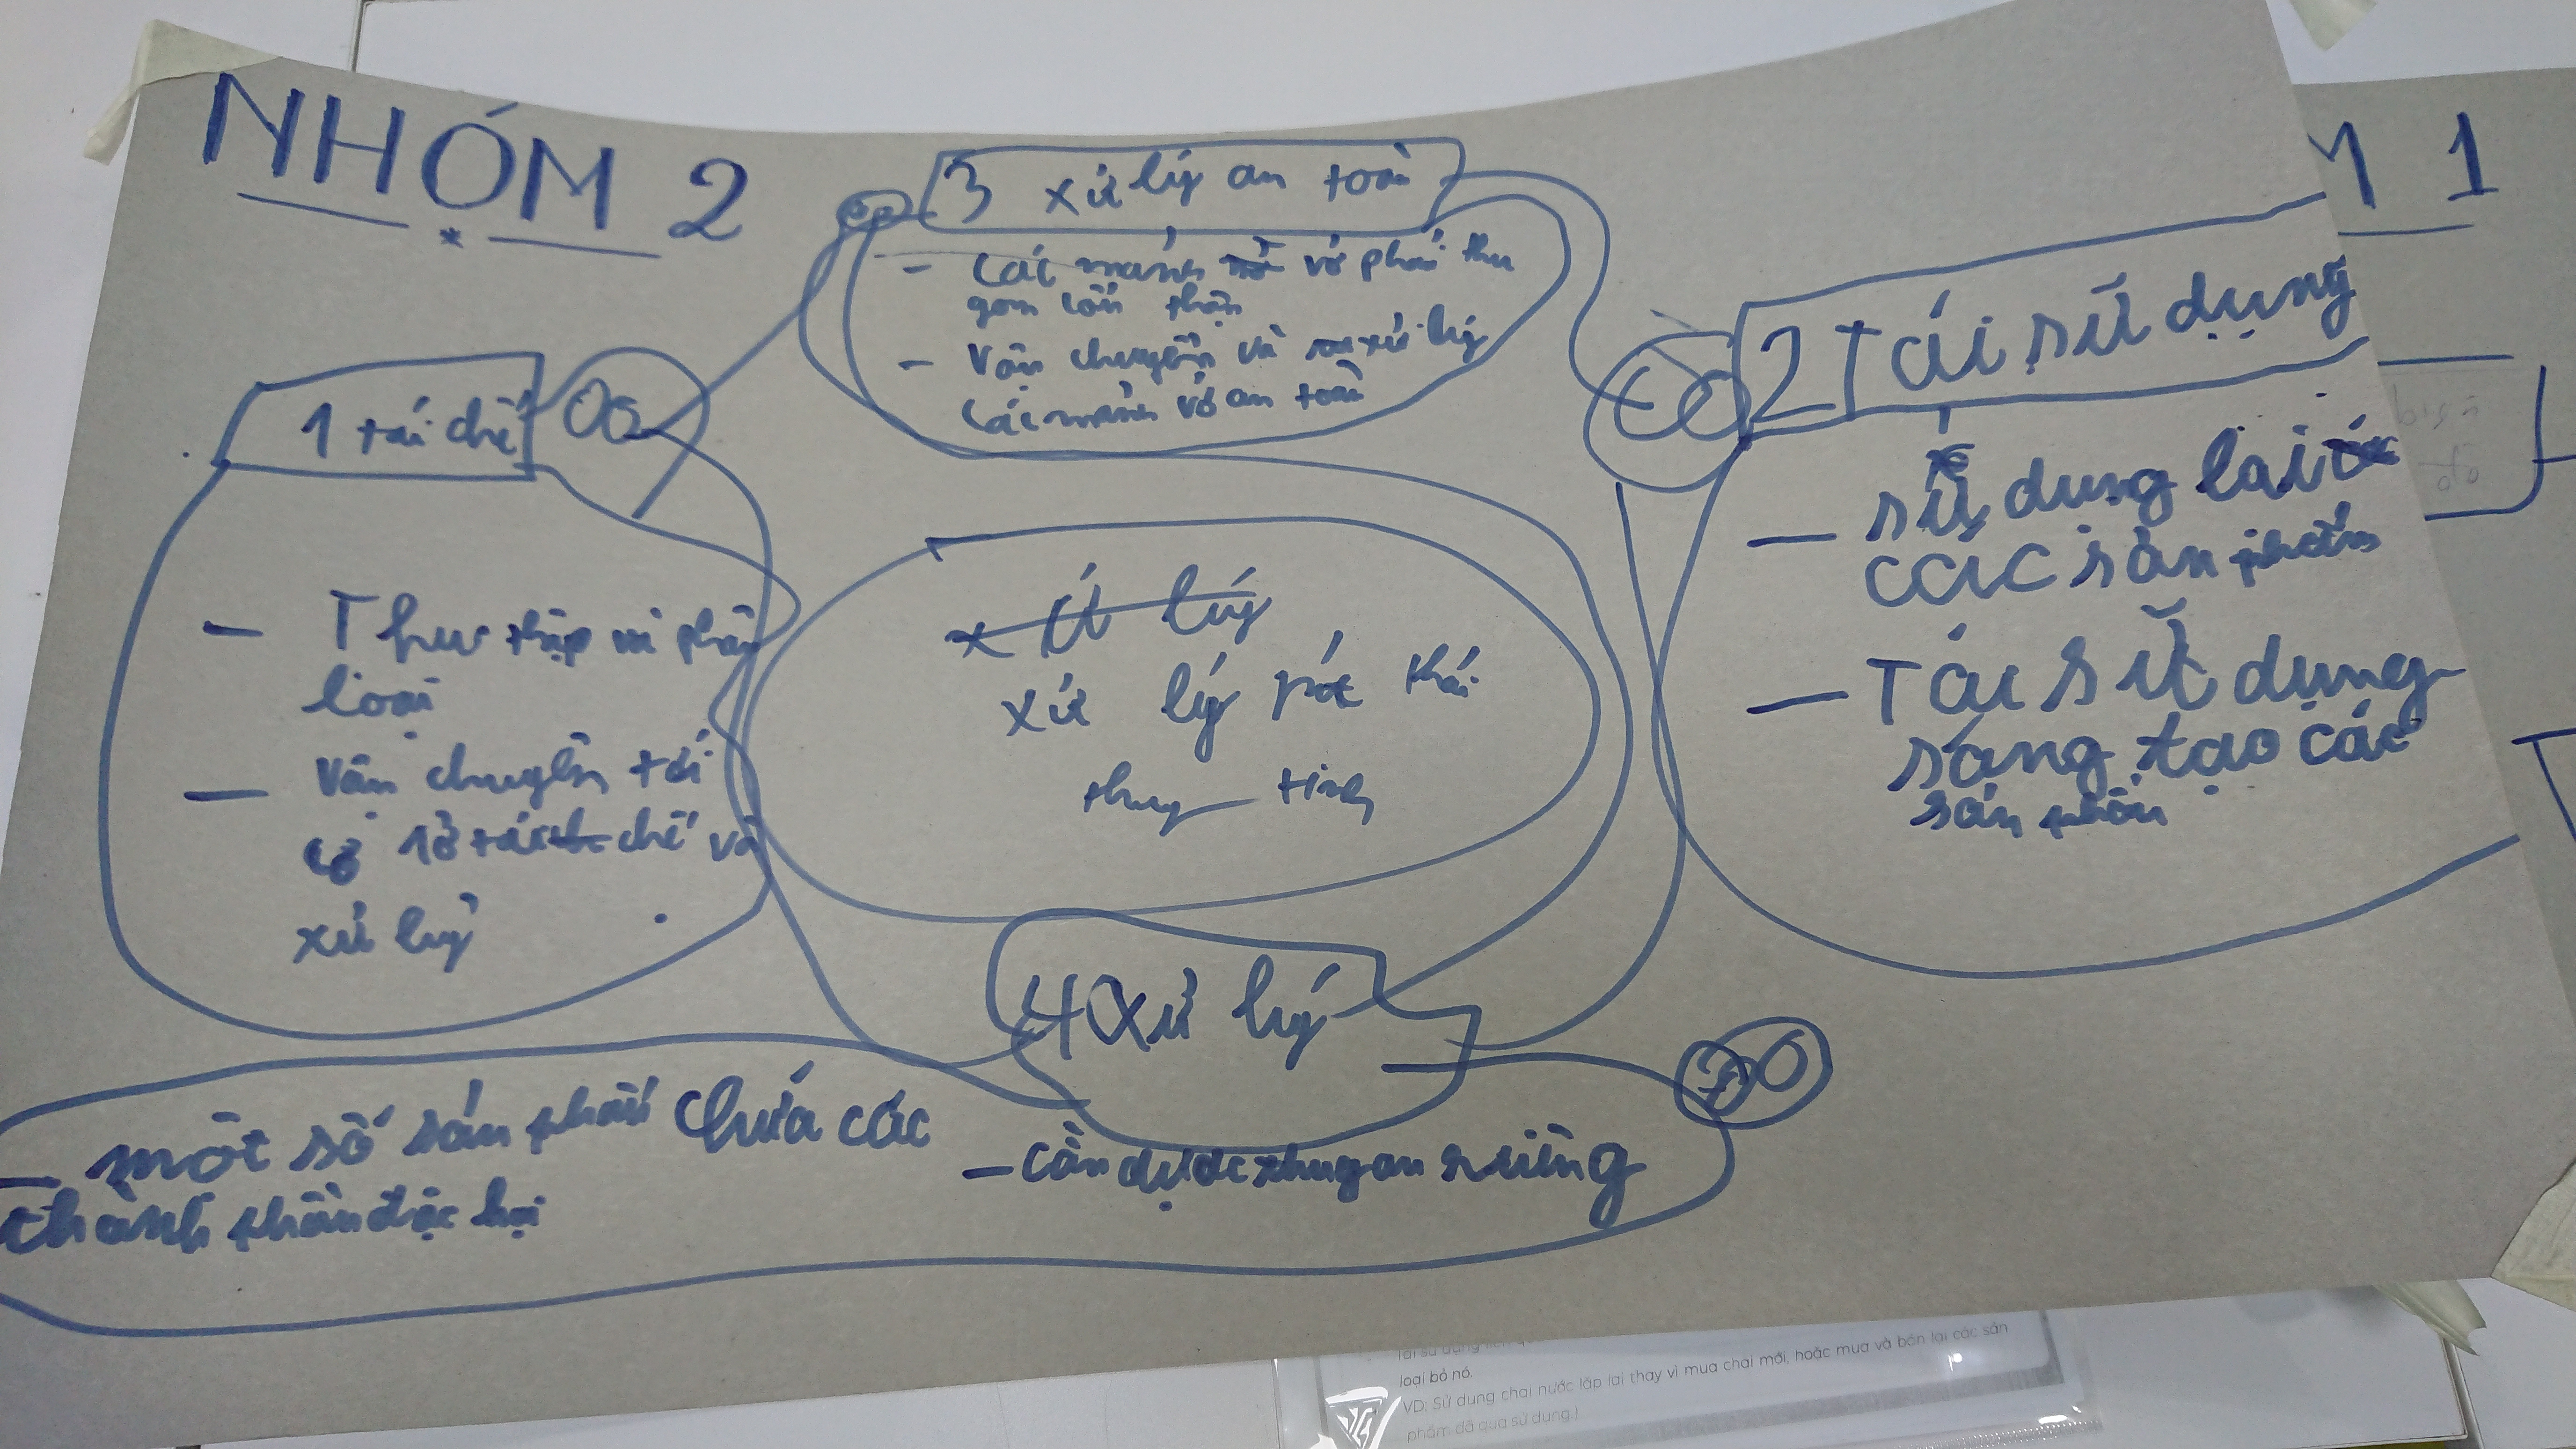 NHÓM 2
M 1
3 xử lý an toàn
- Các mảnh vở phải thu
gom cẩn thận
- Vận chuyển và xử lý
các mảnh vở an toàn
1 tái chế
- Thu thập và phân
loại
- Vận chuyển tới
cơ sở tái chế và
xử lý
2 Tái sữ dụng
- sữ dụng lại
các sản phẩm
- Tái sữ dụng
sáng tạo các
sản phẩm
xử lý
xử lý rót thải
thuy tinh
4 xử lý
- một số sản phẩm chứa các
thành phần độc hại
- cần được thu gom riêng
loại bỏ nó.
VD: Sử dụng chai nước lắp lại thay vì mua chai mới, hoặc mua và bán lại các sản
phẩm đã qua sử dụng.)